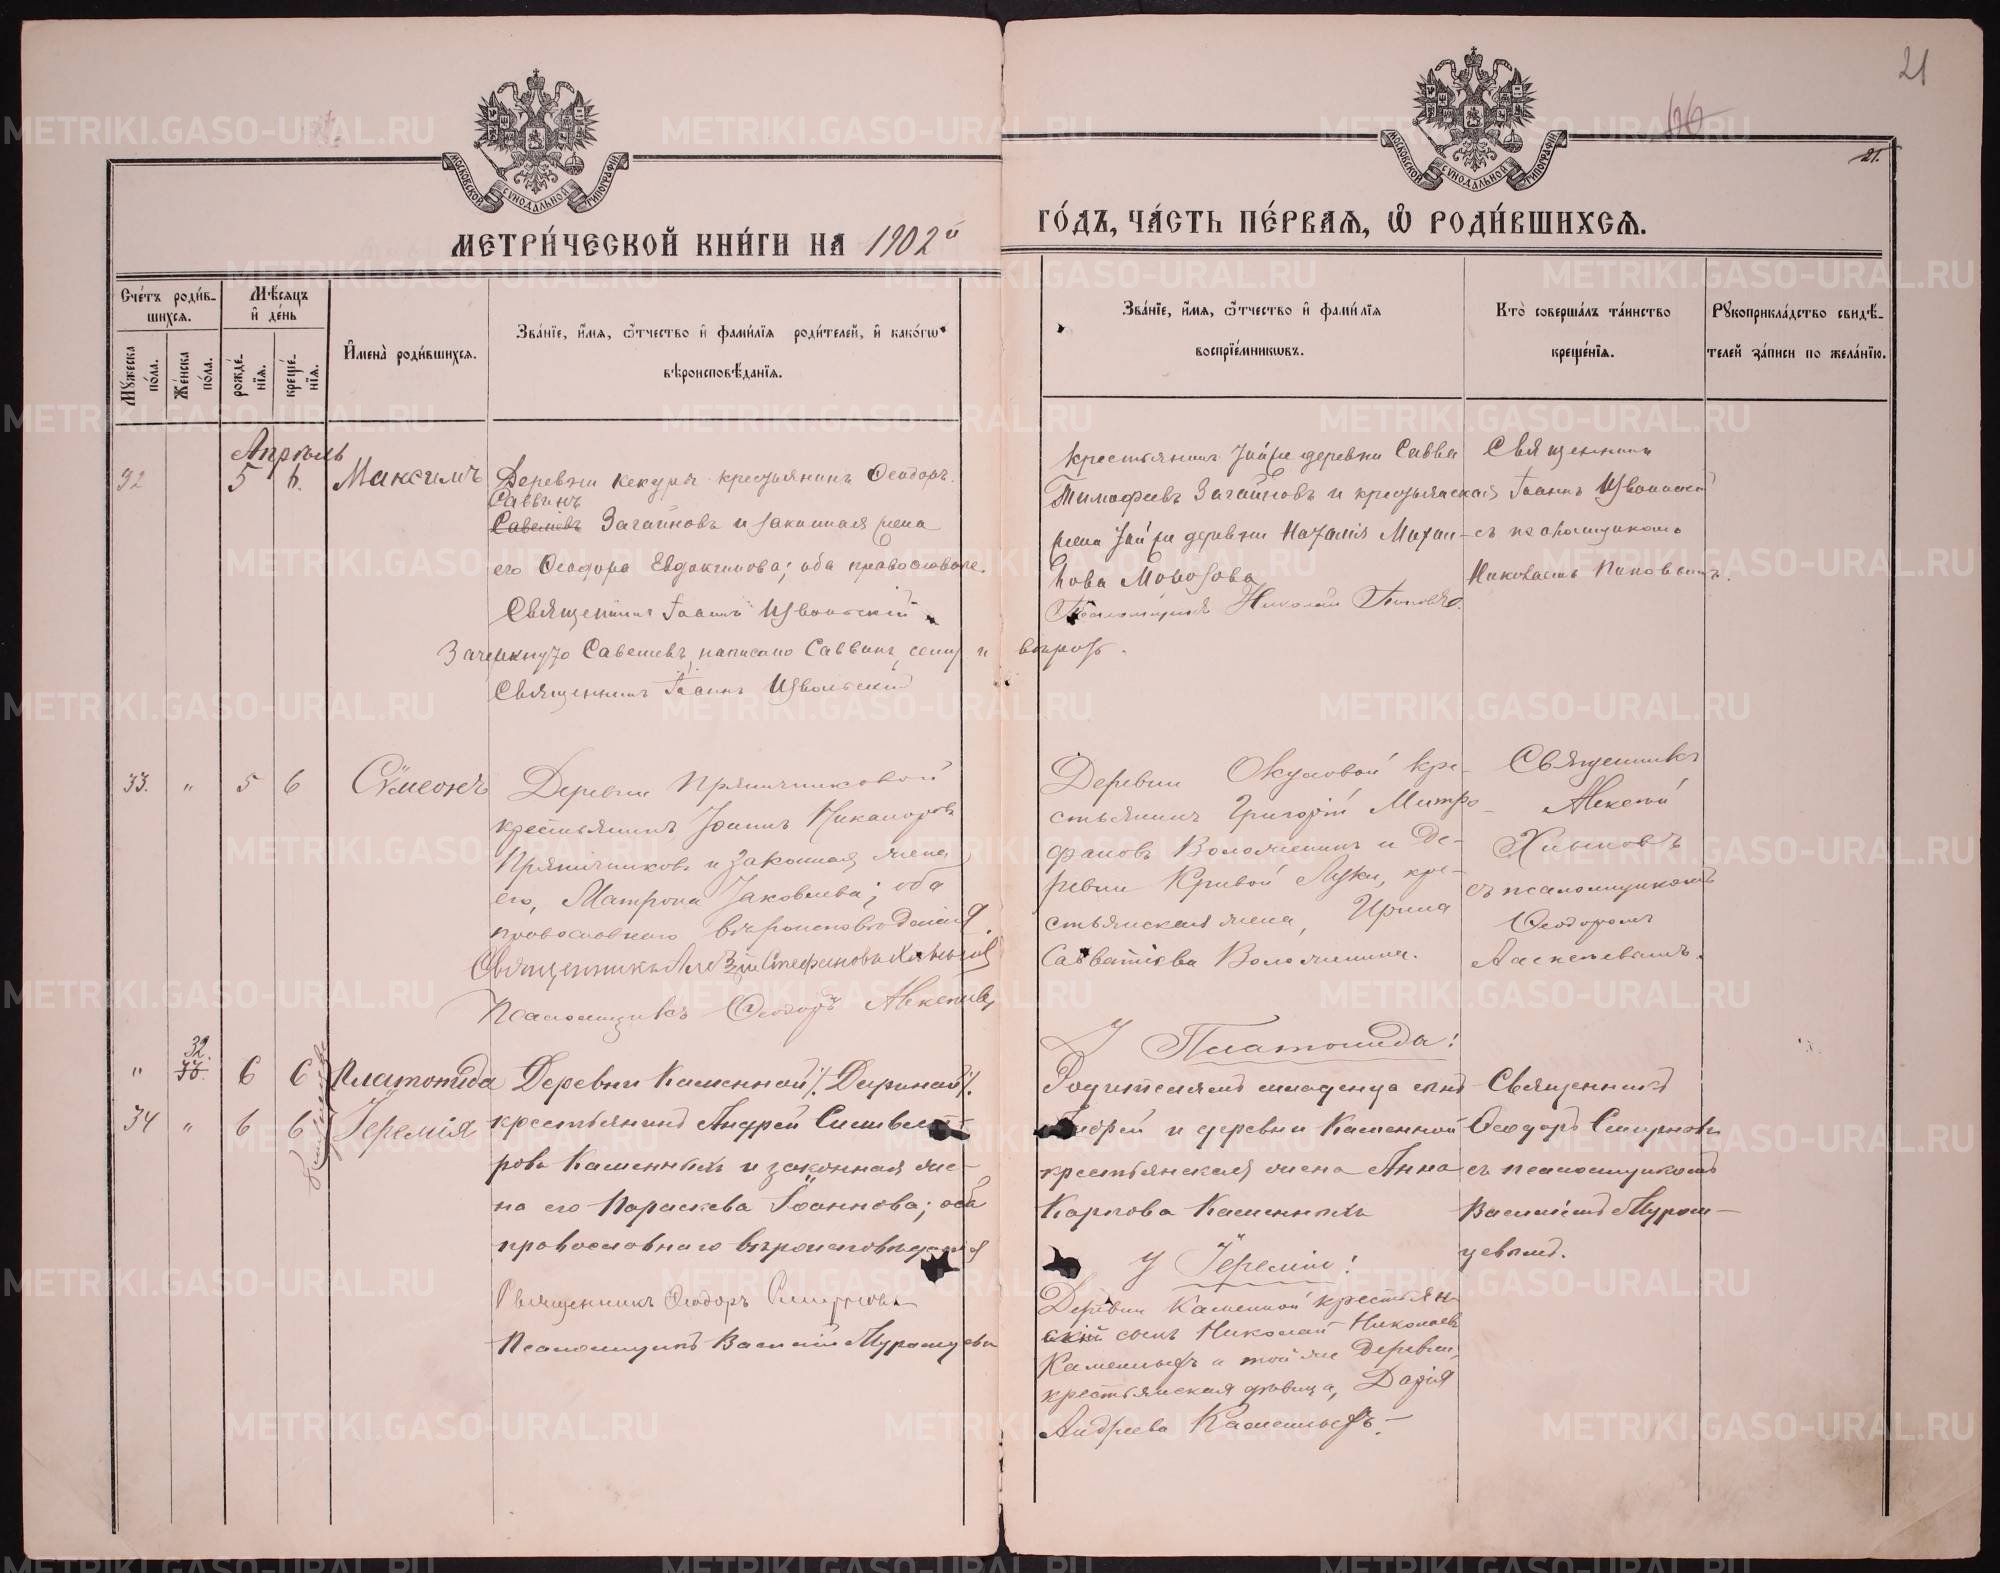 21
66
21.
МОСКОВСКОЙ СѴНОДАЛЬНОЙ ТИПОГРАФИИ
МОСКОВСКОЙ СѴНОДАЛЬНОЙ ТИПОГРАФИИ
МЕТРИ́ЧЕСКОЙ КНИ́ГИ НА 1902й
ГО́ДЪ, ЧА́СТЬ ПЕ́РВАѦ, Ѡ҆ РОДИ́ВШИХСѦ.
Сче́тъ роди́в-
шихсѧ.
Мѣ́сѧцъ
и҆ де́нь
Мꙋжеска
по́ла.
Же́нска
по́ла.
рожде́-
нїѧ.
креще́-
нїѧ.
И҆мена̀ роди́вшихсѧ.
Зва́нїе, и҆́мѧ, ѻ҆́тчество и҆ фами́лїѧ роди́телей, и҆ како́гѡ
вѣроисповѣ́данїѧ.
Зва́нїе, и҆́мѧ, ѻ҆́тчество и҆ фами́лїѧ
воспрїе́мникѡвъ.
Кто̀ соверша́лъ та́инство
креще́нїѧ.
Рꙋкоприкла́дство свидѣ́-
телей за́писи по жела́нїю.
Апрѣль
32 5 6. Максимъ
Деревни Кекура крестьянинъ Ѳеодоръ
Саввинъ
Савелевъ Загайновъ и законная жена
его Ѳеодора Евдокимова; оба православн.
Священникъ Іоаннъ Изволенскій
Зачеркнуто Савелевъ, написано Саввинъ, сему и вѣрить.
Священникъ Іоаннъ Изволенскій
крестьянинъ той же деревни Савва
Тимоѳеевъ Загайновъ и крестьянская
жена той же деревни Наталія
Морозова
Псаломщикъ Николай Поповъ.
Священникъ
Іоаннъ Изволенскій
съ псаломщикомъ
Николаемъ Поповымъ.
33. " 5 6 Сѷмеонъ
Деревни Пряничниковой
крестьянинъ Іоаннъ Никаноровъ
Пряничниковъ и законная жена
его, Матрона Іаковлева; оба
православнаго вѣроисповѣданія.
Священникъ Алексій Стефановъ Хлыновъ
Псаломщикъ Ѳеодоръ Алексѣевъ
Деревни Окуловой кре-
стьянинъ Григорій Митро-
фановъ Воложенинъ и де-
ревни Кривой Луки, кре-
стьянская жена, Ирина
Савватіева Воложенина.
Священникъ
Алексій
Хлыновъ
съ псаломщикомъ
Ѳеодоромъ
Алексѣевымъ.
" 32. 6 6 Платонида
34 " 6 6 Іеремія
близнецы
Деревни Каменной
крестьянинъ Андрей
ровъ Каменныхъ и законная же-
на его Параскева Іоаннова; оба
православнаго вѣроисповѣданія
Священникъ Ѳеодоръ Смирновъ
Псаломщикъ Василій Муромцевъ
У Платониды:
Родителямъ младенца сынъ
Андрей и деревни Каменной
крестьянская жена Анна
Карпова Каменныхъ
У Іереміи:
Деревни Каменной крестьян-
скій сынъ Николай Николаевъ
Каменныхъ и той же деревни,
крестьянская дѣвица, Дарія
Андреева Каменныхъ.
Священникъ
Ѳеодоръ Смирновъ
съ псаломщикомъ
Василіемъ Муром-
цевымъ.
METRIKI.GASO-URAL.RU